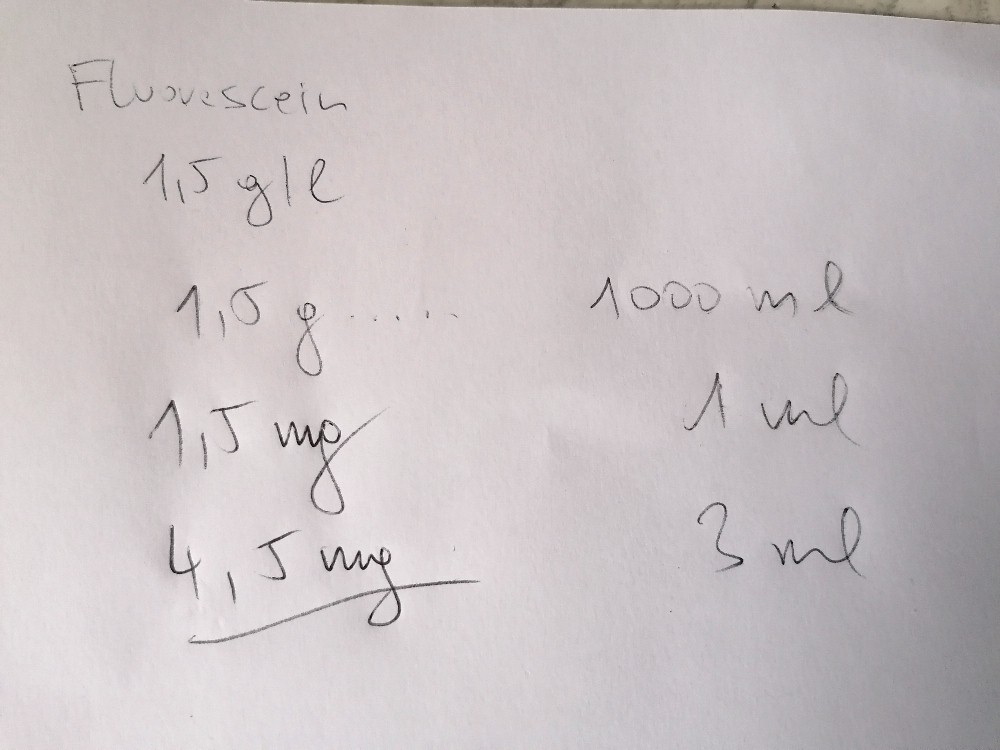 Fluorescein
1,5 g/l
1,5 g ..... 1000 ml
1,5 mg 1 ml
4,5 mg 3 ml